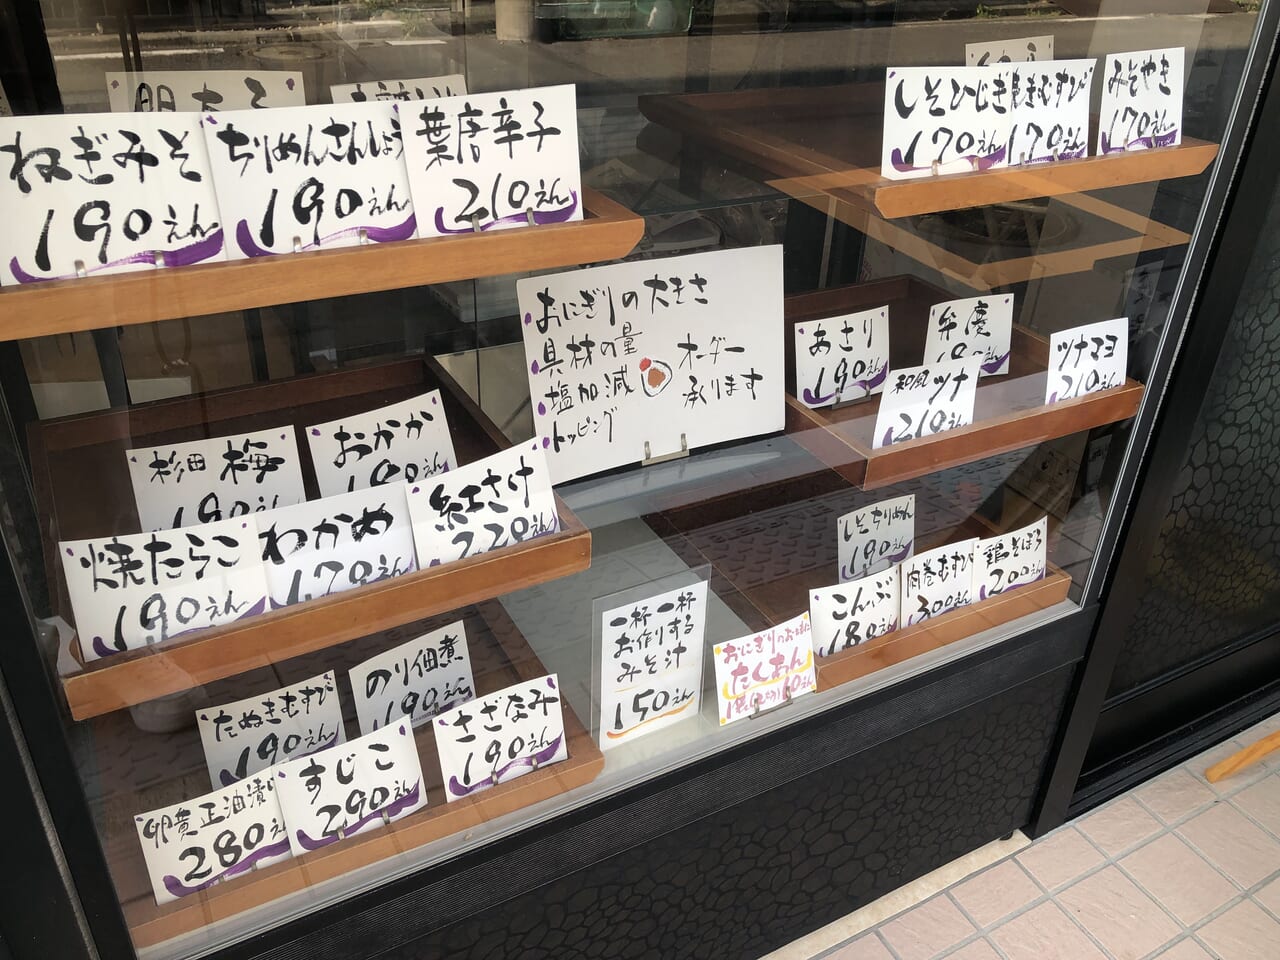 明太子
ねぎみそ
190えん
ちりめんさんしょう
190えん
葉唐辛子
210えん
しそひじき
170えん
焼きむすび
170えん
みそやき
170えん
おにぎりの大きさ
具材の量
塩加減
トッピング
オーダー
承ります
あさり
190えん
弁慶
和風ツナ
210えん
ツナマヨ
210えん
杉田梅
190えん
おかか
190えん
焼たらこ
190えん
わかめ
170えん
紅さけ
220えん
しそちりめん
190えん
こんぶ
180えん
肉巻むすび
300えん
鶏そぼろ
200えん
一杯一杯
お作りする
みそ汁
150えん
おにぎりのお供に
たくあん
60えん
たぬきむすび
190えん
のり佃煮
190えん
卵黄正油漬け
280えん
すじこ
290えん
さざなみ
190えん